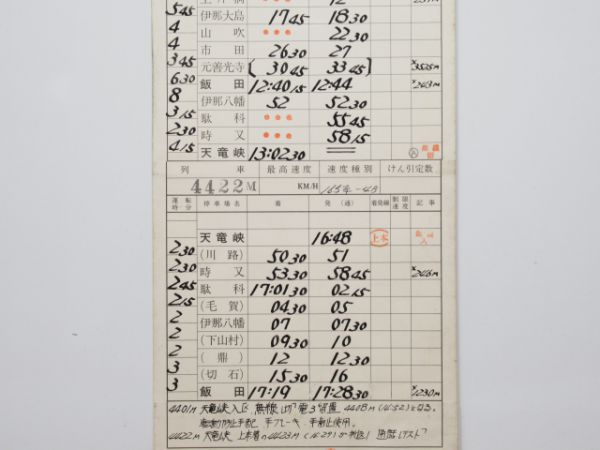 5 45 伊那大島 17 45 18 30
4 山吹 ••• 22 30
4 市田 26 30 27
3 45 元善光寺 [ 30 45 33 45 ]
6 30 飯田 12:40 15 12:44 ×243M
8 伊那八幡 52 52 30
3 15 駄科 ••• 55 45
2 30 時又 ••• 58 15
4 15 天竜峡 13:02 30
列車 最高速度 速度種別 けん引定数
4422M KM/H
運転時分 停車場名 着 発(通) 着発線 制限速度 記事
天竜峡 16:48 上本 入
2 30 (川路) 50 30 51
2 30 時又 53 30 58 45 ×246M
2 45 駄科 17:01 30 02 15
2 15 (毛賀) 04 30 05
2 伊那八幡 07 07 30
2 (下山村) 09 30 10
2 (鼎) 12 12 30
3 (切石) 15 30 16
3 飯田 17:19 17:28 30 ×230M
4401M 天竜峡入区 無線 留置 4408M (14:52) となる。
手配 手ブレーキ 手歯止使用。
4422M 天竜峡 上本着の4423M